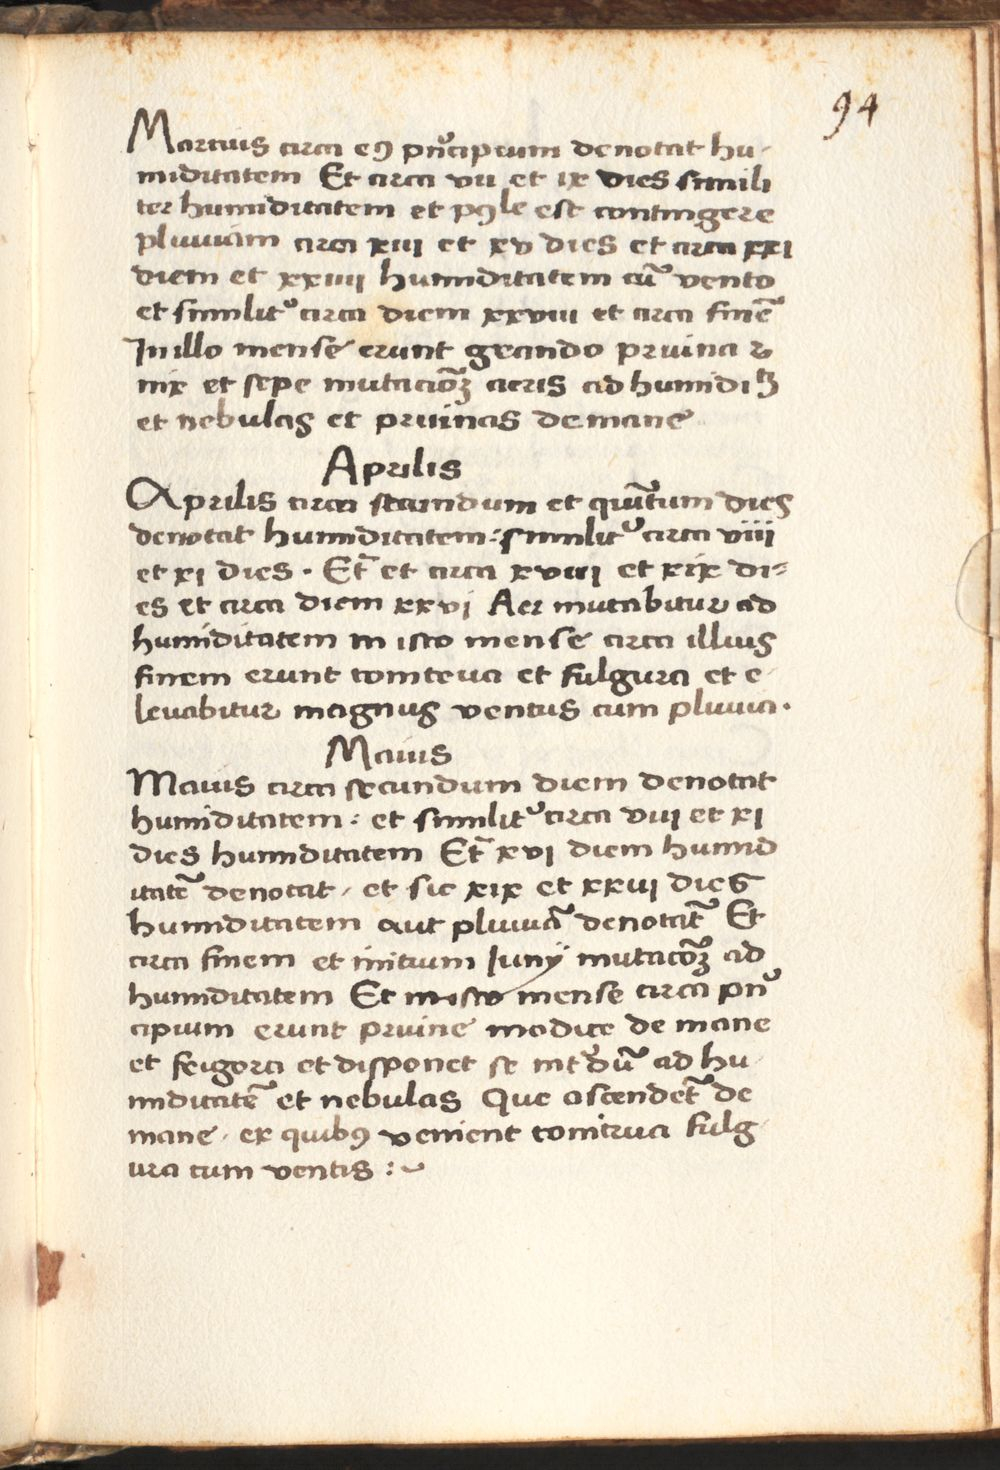 94
Marcius circa eꝯ pⁿcipium denotat hu-
miditatem Et circa vii et ix dies simili
ter humiditatem et pꝯle est contingere
pluuiam circa xiii et xv dies et circa xxi
diem et xxiiii humiditatem cū vento
et similit᾽ circa diem xxviii et circa finē
In illo mense erunt grando pruina ꝛ
nix et sepe mutacioꝫ aeris ad humidi
et nebulas et pruinas de mane
Aprilis
Aprilis circa secundum et quītum dies
denotat humiditatem: similit᾽ circa viii
et xi dies. Et̄ et circa xviii et xix di-
es et circa diem xxvi Aer mutabitur ad
humiditatem in isto mense circa illius
finem erunt tonitrua et fulgura et e-
leuabitur magnus ventus cum pluuia.
Maius
Maius circa secundum diem denotat
humiditatem: et similit᾽ circa viii et xi
dies humiditatem Et̄ xvi diem humid
itatē denotat, et sic xix et xxiii dies
humiditatem aut pluuiā denotat̄ Et
circa finem et initium Iunÿ mutacōꝫ ad
humiditatem Et in isto mense circa pⁿ
cipium erunt pruine modice de mane
et frigora et disponet se ad hu-
miditatē et nebulas Que ascendet̄ de
mane, ex quibꝯ venient tonitrua fulg-
ura cum ventis :~